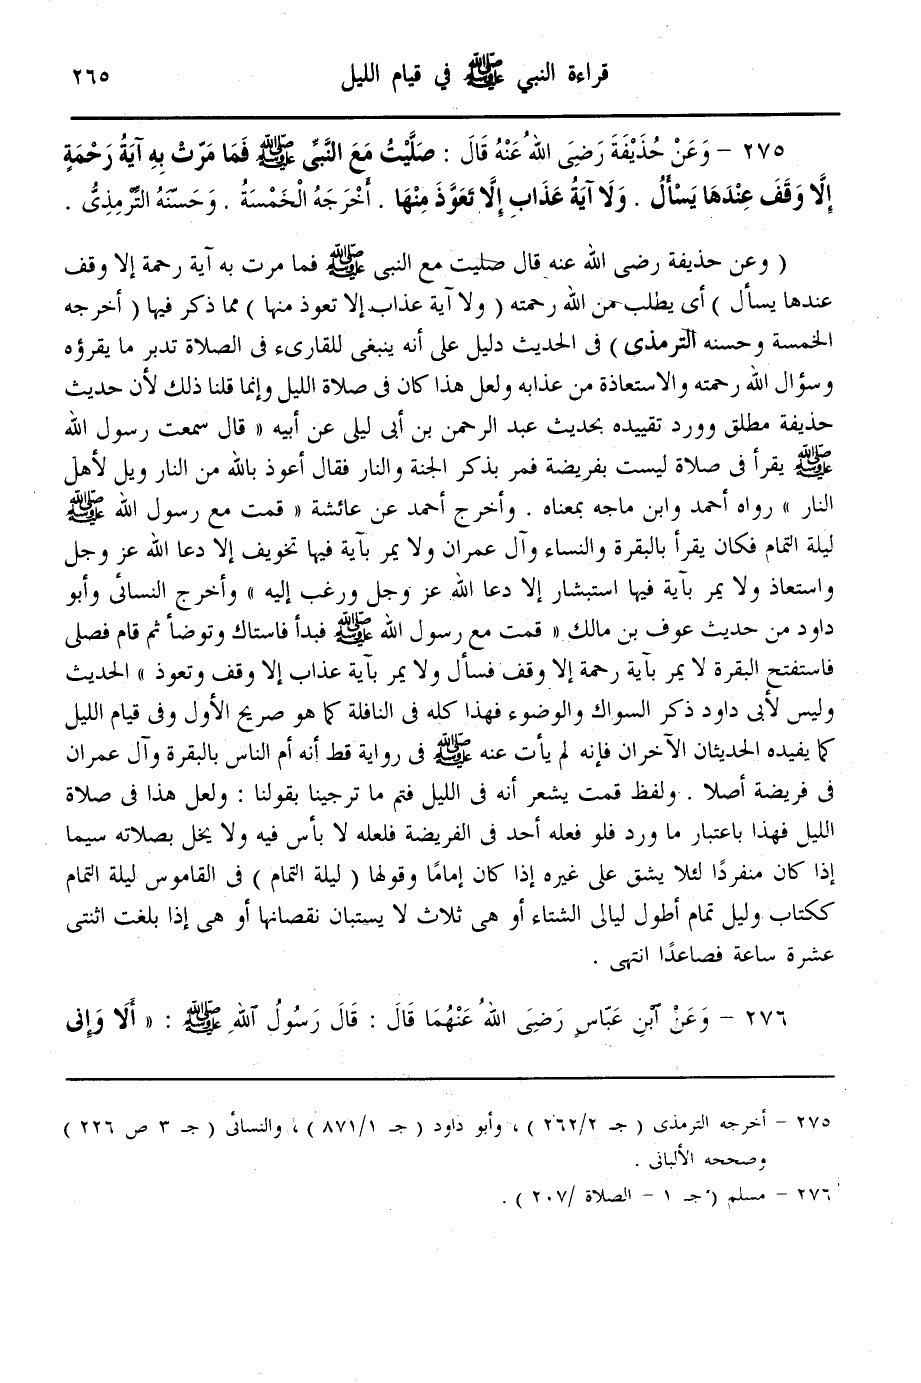 قراءة النبي ﷺ في قيام الليل ٢٦٥
٢٧٥ - وَعَنْ حُذَيْفَةَ رَضِىَ اللهُ عَنْهُ قَالَ : صَلَّيْتُ مَعَ النَّبِّى ﷺ فَمَا مَرَتْ بِهِ آيَةُ رَحْمَةٍ
إِلَّا وَقَفَ عِنْدَهَا يَسْأَلُ . وَلَا آيَةُ عَذَابٍ إِلَّا تَعَوَّذَ مِنْهَا . أَخْرَجَهُ الْخَمْسَةُ . وَحَسَّنَهُ التِّرْمِذِىُّ .
( وعن حذيفة رضى الله عنه قال صليت مع النبى ﷺ فما مرت به آية رحمة إلا وقف
عندها يسأل ) أى يطلب من الله رحمته ( ولا آية عذاب إلا تعوذ منها ) مما ذكر فيها ( أخرجه
الخمسة وحسنه الترمذى ) فى الحديث دليل على أنه ينبغى للقارىء فى الصلاة تدبر ما يقرؤه
وسؤال الله رحمته والاستعاذة من عذابه ولعل هذا كان فى صلاة الليل وإنما قلنا ذلك لأن حديث
حذيفة مطلق وورد تقييده بحديث عبد الرحمن بن أبى ليلى عن أبيه « قال سمعت رسول الله
ﷺ يقرأ فى صلاة ليست بفريضة فمر بذكر الجنة والنار فقال أعوذ بالله من النار ويل لأهل
النار » رواه أحمد وابن ماجه بمعناه . وأخرج أحمد عن عائشة « قمت مع رسول الله ﷺ
ليلة التمام فكان يقرأ بالبقرة والنساء وآل عمران ولا يمر بآية فيها تخويف إلا دعا الله عز وجل
واستعاذ ولا يمر بآية فيها استبشار إلا دعا الله عز وجل ورغب إليه » وأخرج النسائى وأبو
داود من حديث عوف بن مالك « قمت مع رسول الله ﷺ فبدأ فاستاك وتوضأ ثم قام فصلى
فاستفتح البقرة لا يمر بآية رحمة إلا وقف فسأل ولا يمر بآية عذاب إلا وقف وتعوذ » الحديث
وليس لأبى داود ذكر السواك والوضوء فهذا كله فى النافلة كما هو صريح الأول وفى قيام الليل
كما يفيده الحديثان الآخران فإنه لم يأت عنه ﷺ فى رواية قط أنه أم الناس بالبقرة وآل عمران
فى فريضة أصلا . ولفظ قمت يشعر أنه فى الليل فتم ما ترجينا بقولنا : ولعل هذا فى صلاة
الليل فهذا باعتبار ما ورد فلو فعله أحد فى الفريضة فلعله لا بأس فيه ولا يخل بصلاته سيما
إذا كان منفردًا لئلا يشق على غيره إذا كان إمامًا وقولها ( ليلة التمام ) فى القاموس ليلة التمام
ككتاب وليل تمام أطول ليالى الشتاء أو هى ثلاث لا يستبان نقصانها أو هى إذا بلغت اثنتى
عشرة ساعة فصاعدًا انتهى .
٢٧٦ - وَعَنْ آبْنِ عَبَّاسٍ رَضِىَ اللهُ عَنْهُمَا قَالَ : قَالَ رَسُولُ آللهِ ﷺ : « أَلَا وَإِنى
٢٧٥ - أخرجه الترمذى ( جـ ٢٦٢/٢ ) ، وأبو داود ( جـ ٨٧١/١ ) ، والنسائى ( جـ ٣ ص ٢٢٦ )
وصححه الألبانى .
٢٧٦ - مسلم ( جـ ١ - الصلاة /٢٠٧ ) .